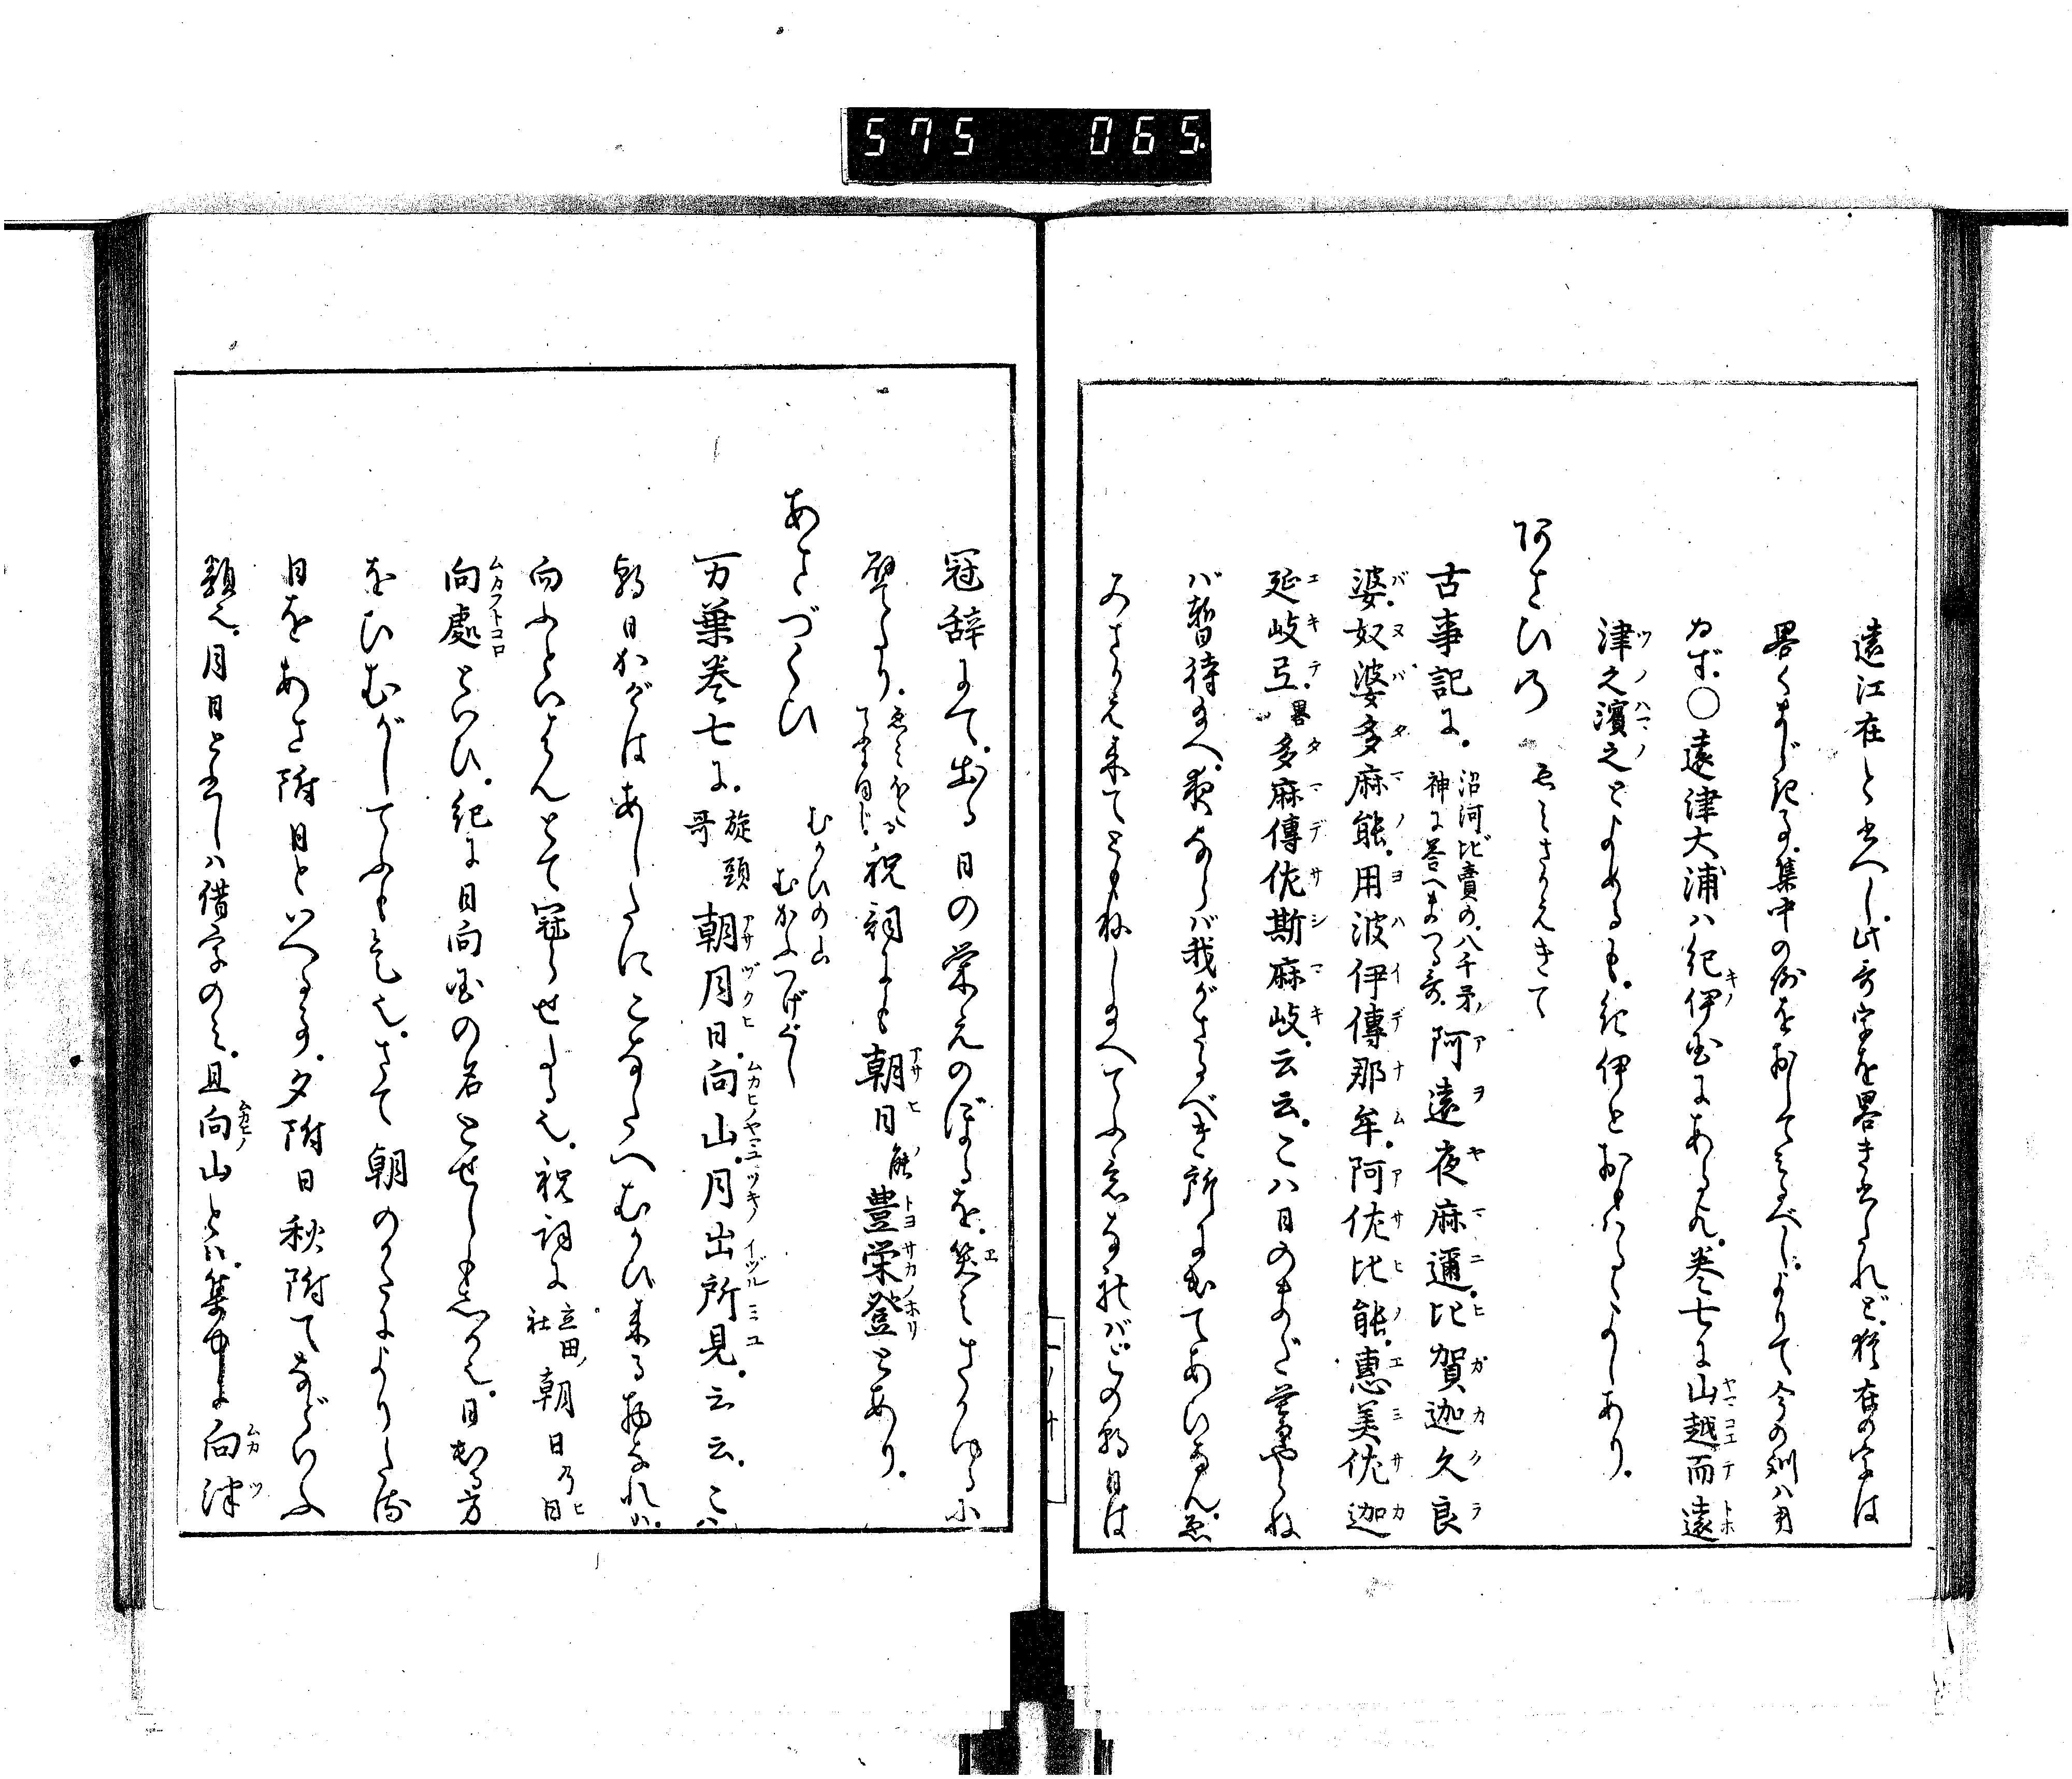 575 065
遠江在と出へし此哥字を畧き出されど猶在の字は
畧くまじ紀る集中の例をおしてみるべしよりて今の訓ハ用
ゐず○遠津大浦ハ紀伊国にある也巻七に山越而遠
津之濱之とよめるも紀伊とおもはるゝよしあり
阿さひの ゑみさかえきて
古事記に沼河比賣の八千矛神に答へまつる哥阿遠夜麻邇比賀迦久良
婆奴婆多麻能用波伊傳那牟阿佐比能惠美佐迦
延岐弖畧多麻傳佐斯麻岐云云こハ日のまだ暮やらね
バ暫待給へ夜ならバ我がさるべき所に出てあひなんゑ
みさかえ来てともねし給へてふ意なれバこの朝日は
冠辞にて出る日の栄えのぼるを笑みさかゆるに
譬たり祝詞にも朝日能豊栄登とあり
あさづくひ むかひの山 むかふつげぐし
万葉巻七に旋頭哥朝月日向山月出所見云云こハ
朝日かげはあしたにこなたへむかひ来る物なれバ
向ふといはんとて冠らせしなる也祝詞に立田ノ社朝日乃日
向處といひ紀に日向国の名とせしも意しか也日出る方
をひむがしてふも是也さて朝のかたによりたる
日をあさ附日といへるなり夕附日秋附てなどいふ
類也月日と出しハ借字のみ且向山とは集中に向津